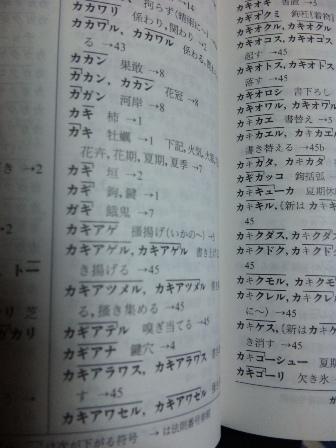 カカワリ 係わり, 関わり
カカワル, カカワル
る →43
カカン 果敢 →8
カカン, カカン 花冠 →8
カガン 河岸 →8
カキ 柿 →1
カキ 牡蠣 →1 下記, 火気, 火
花卉, 花期, 夏期, 夏季 →7
カキ 垣 →2
カギ 鉤, 鍵 →1
ガキ 餓鬼 →7
カキアゲ 搔揚げ(いかの〜) →5
カキアゲル, カキアゲル 書き上げ
き揚げる →45
カキアツメル, カキアツメル
る, 搔き集める →45
カギアテル 嗅ぎ当てる →45
カギアナ 鍵穴 →4
カキアラワス, カキアラワス 書
す →45
カキアワセル, カキアワセル
カキオキ 書置 →5
カキオクル, カキオ
→45
カキオコス, カキオコス
起す →45
カキオトス, カキオトス
落す →45
カキオロシ 書下ろし
カキオワル, カキオワル
カキカエ 書替え →5
カキカエル, カキカエ
書き替える →45b
カキカタ, カキカタ 書
カギカッコ 鉤括弧
カキキューカ 夏期休
カキキル, (新は カキキ
→45
カキクダス, カキクダ
カキクドク, カキクド
→45
カキクモル, カキクモ
カキクレル, カキクレ
に〜) →45
カキケス, (新は カキ
き消す →45
カキゴーシュー 夏期
カキゴーリ 欠き氷